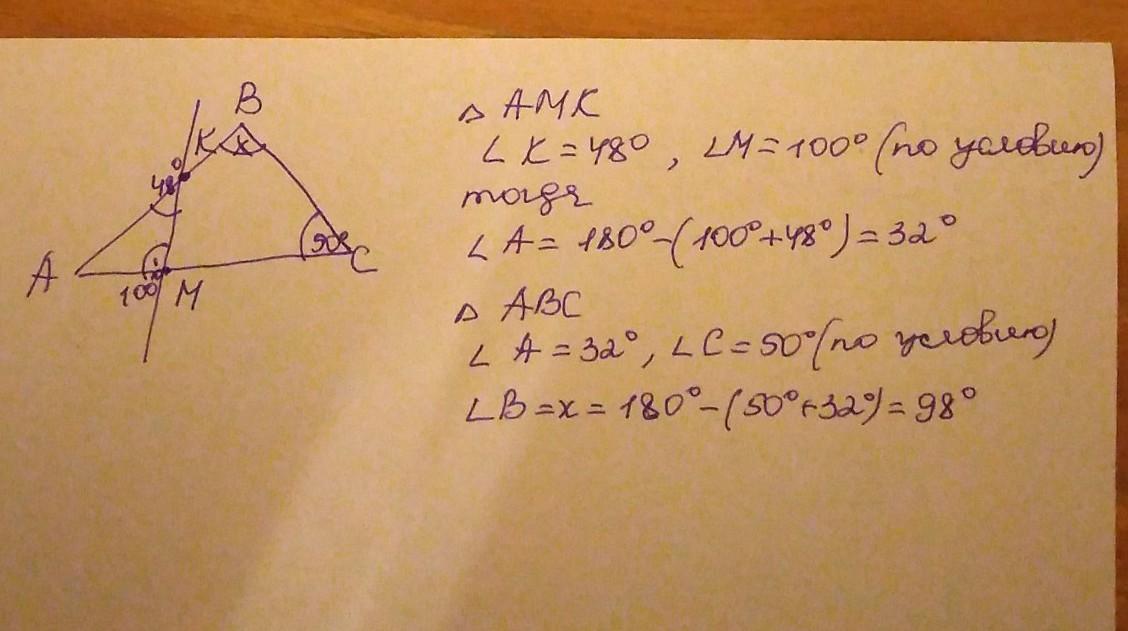 B
K
x
48°
A
100°
M
50°
C
△ AMK
∠K=48°, ∠M=100° (по условию)
тогда
∠A= 180°-(100°+48°)=32°
△ ABC
∠A=32°, ∠C=50° (по условию)
∠B=x=180°-(50°+32°)=98°